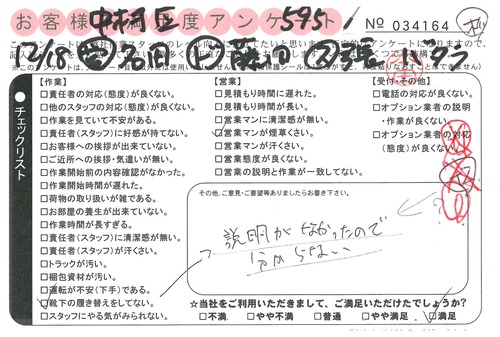 お客様満足度アンケート
中村区
595
No 034164
12/18
【作業】
□責任者の対応(態度)が良くない。
□他のスタッフの対応(態度)が良くない。
□作業を見ていて不安がある。
□責任者(スタッフ)に好感が持てない。
□お客様への挨拶が出来ていない。
□ご近所への挨拶・気遣いが無い。
□作業開始前の内容確認がなかった。
□作業開始時間が遅れた。
□荷物の取り扱いが雑である。
□お部屋の養生が出来ていない。
□作業時間が長すぎる。
□責任者(スタッフ)に清潔感が無い。
□責任者(スタッフ)が汗くさい。
□トラックが汚い。
□梱包資材が汚い。
□運転が不安(下手)である。
□靴下の履き替えをしてない。
□スタッフにやる気がみられない。
【営業】
□見積もり時間に遅れた。
□見積もり時間が長い。
□営業マンに清潔感が無い。
□営業マンが煙草くさい。
□営業マンが汗くさい。
□営業態度が良くない。
□営業の説明と作業が一致してない。
【受付・その他】
□電話の対応が良くない。
□オプション業者の説明
・作業が良くない。
□オプション業者の対応
(態度)が良くない。
●チェックリスト
その他、ご意見・ご要望等ありましたらお書き下さい。
説明がなかったので
分からない
☆当社をご利用いただきまして、ご満足いただけたでしょうか?
□不満 □やや不満 □普通 □やや満足 □満足